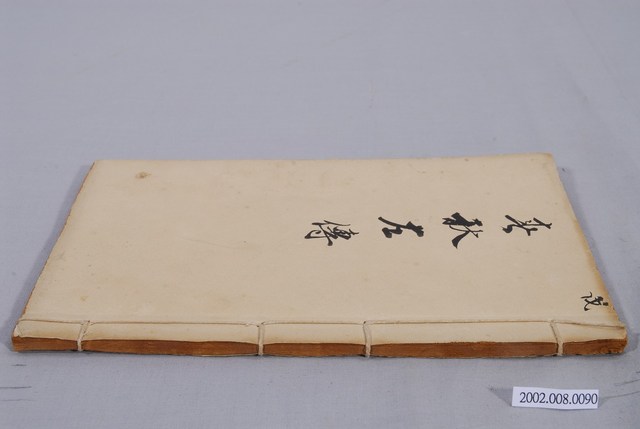 春秋左傳
2002.008.0090